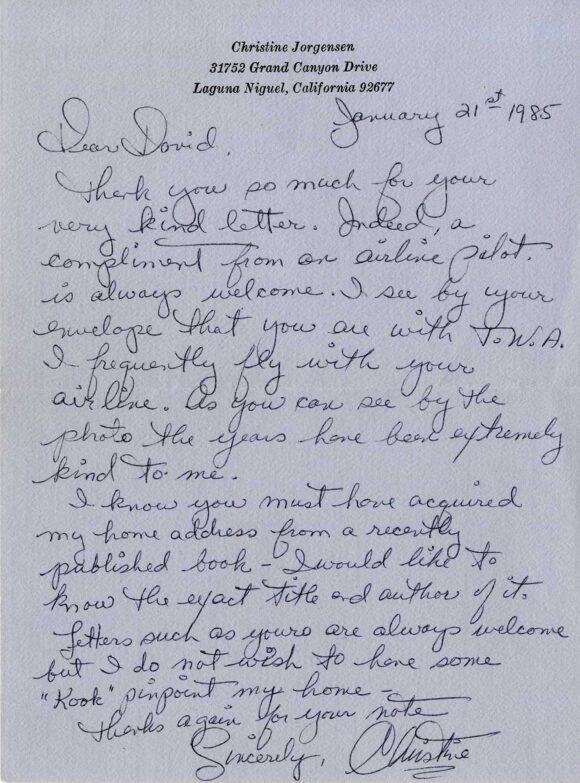 Christine Jorgensen
31752 Grand Canyon Drive
Laguna Niguel, California 92677
January 21st 1985
Dear David,
Thank you so much for your
very kind letter. Indeed, a
compliment from an airline pilot.
is always welcome. I see by your
envelope that you are with T.W.A.
I frequently fly with your
airline. As you can see by the
photo the years have been extremely
kind to me.
I know you must have acquired
my home address from a recently
published book - I would like to
know the exact title and author of it.
Letters such as yours are always welcome
but I do not wish to have some
"Kook" pinpoint my home -
Thanks again for your note
Sincerely, Christine